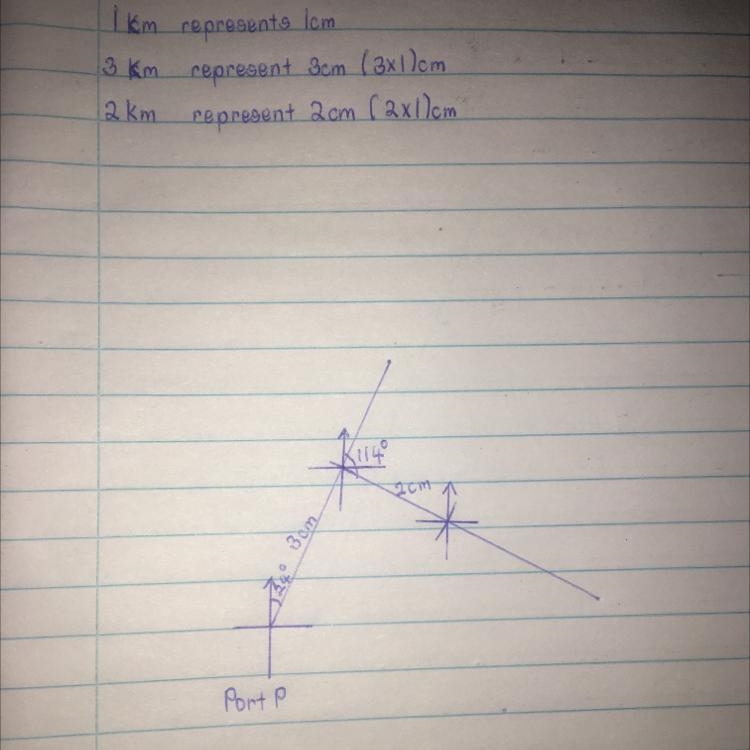 1 km represents 1cm
3 km represent 3cm (3x1)cm
2 km represent 2cm (2x1)cm
114°
2cm
3cm
24°
Port P